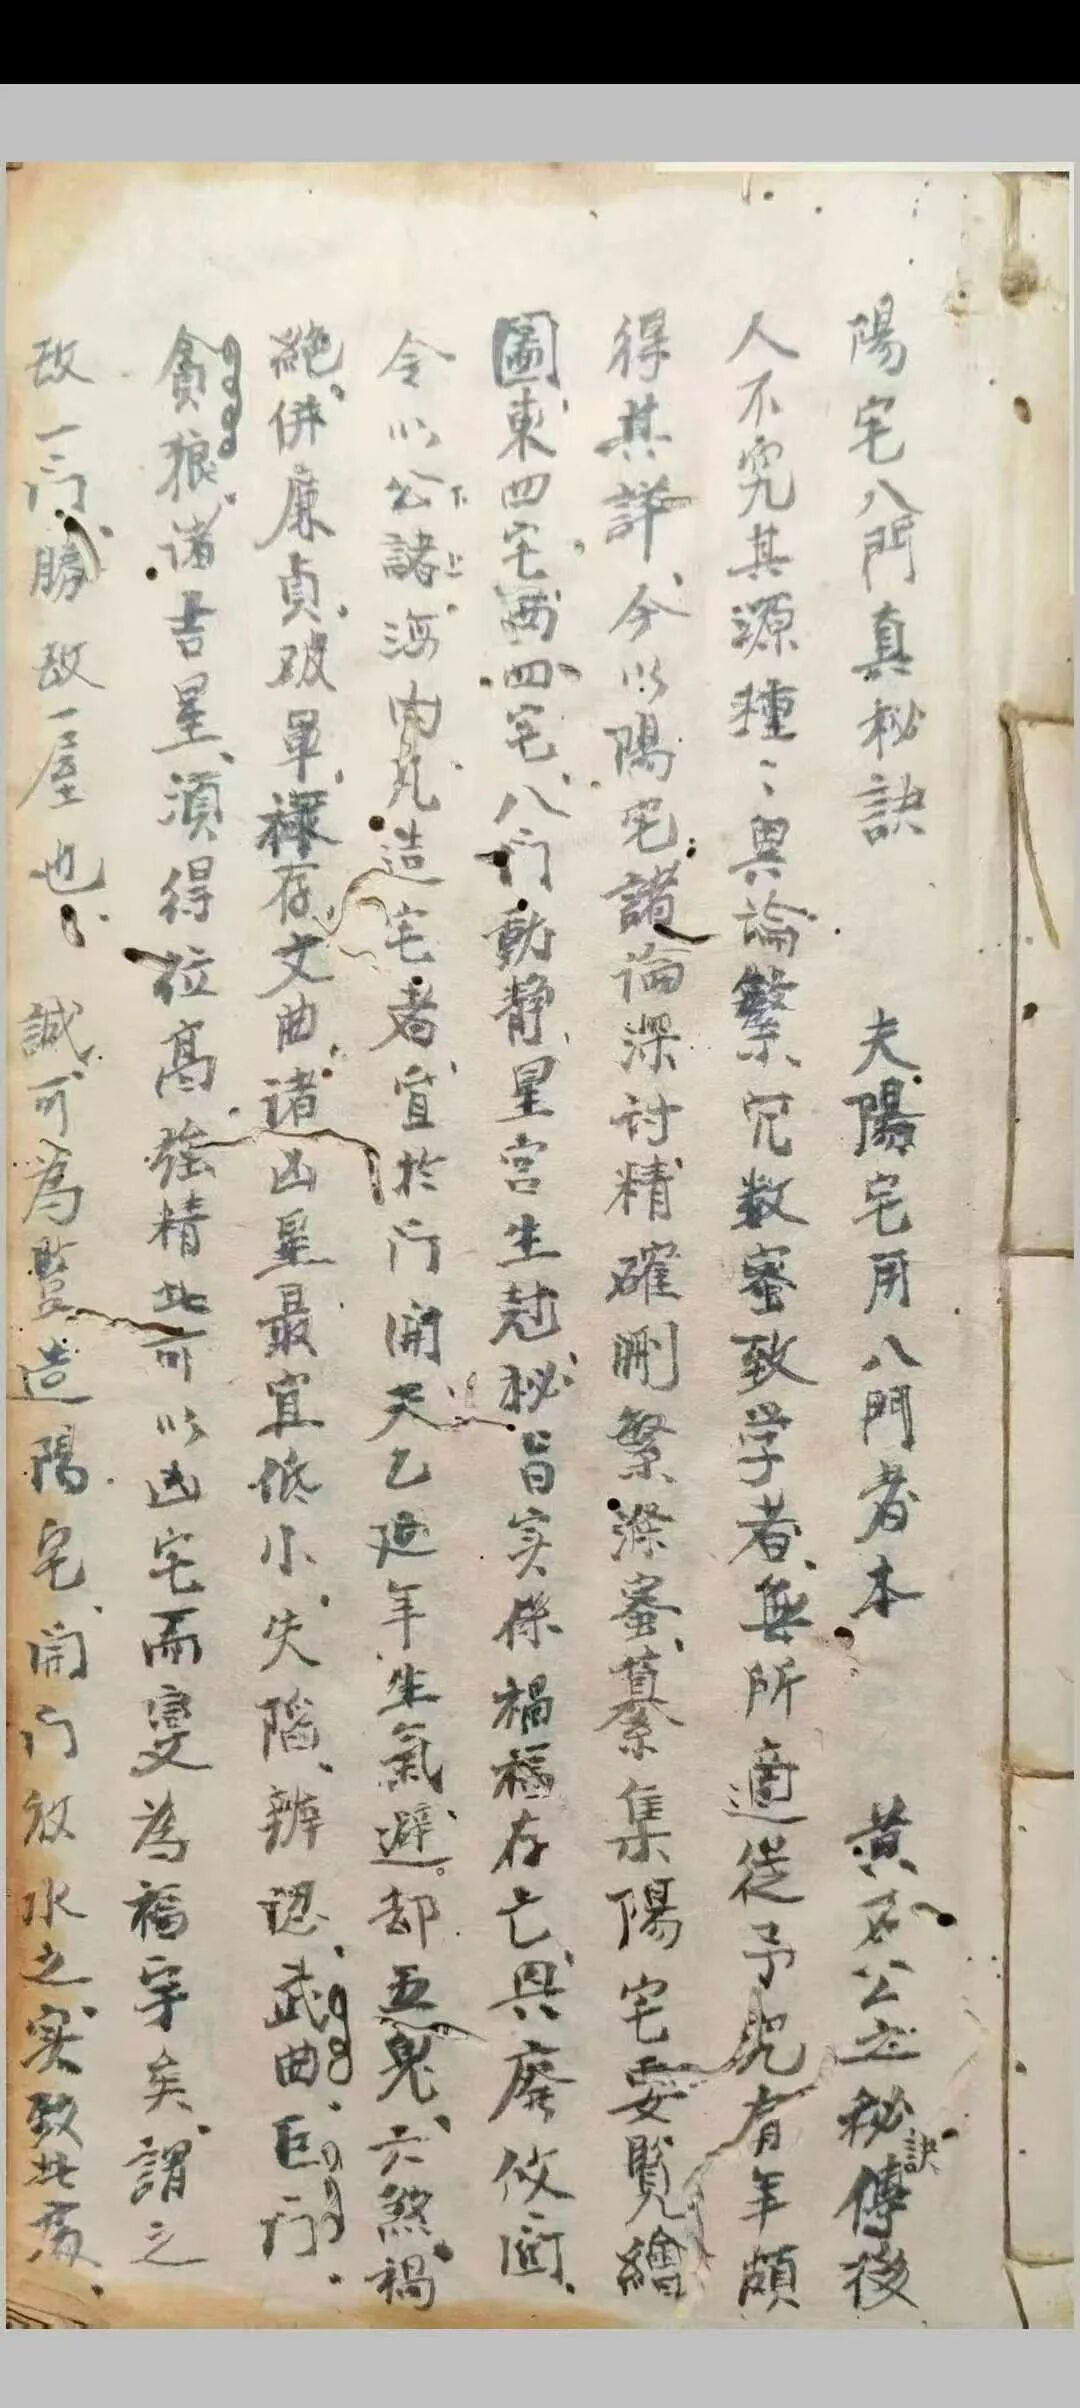 陽宅八門真秘訣 夫陽宅用八門者本 黄石公之秘訣傳後
人不究其源種々異論繁冗数蜜致学者無所適從予究有年頗
得其詳今以陽宅諸論深討精確刪繁滌蜜纂集陽宅要覧繪
圖東四宅西四宅八门動静星宫生尅秘旨实係禍福存亡興廢攸関
令以公諸海内凡造宅者宜於门開天乙延年生氣避却五鬼六煞禍
絶併廉貞破軍禄存文曲诸凶星最宜低小失陷辨認武曲巨门
貪狼诸吉星須得位高強精此可以凶宅而変為福宇矣謂之
改一门勝改一屋也 誠可為監造陽宅開门放水之实致此為